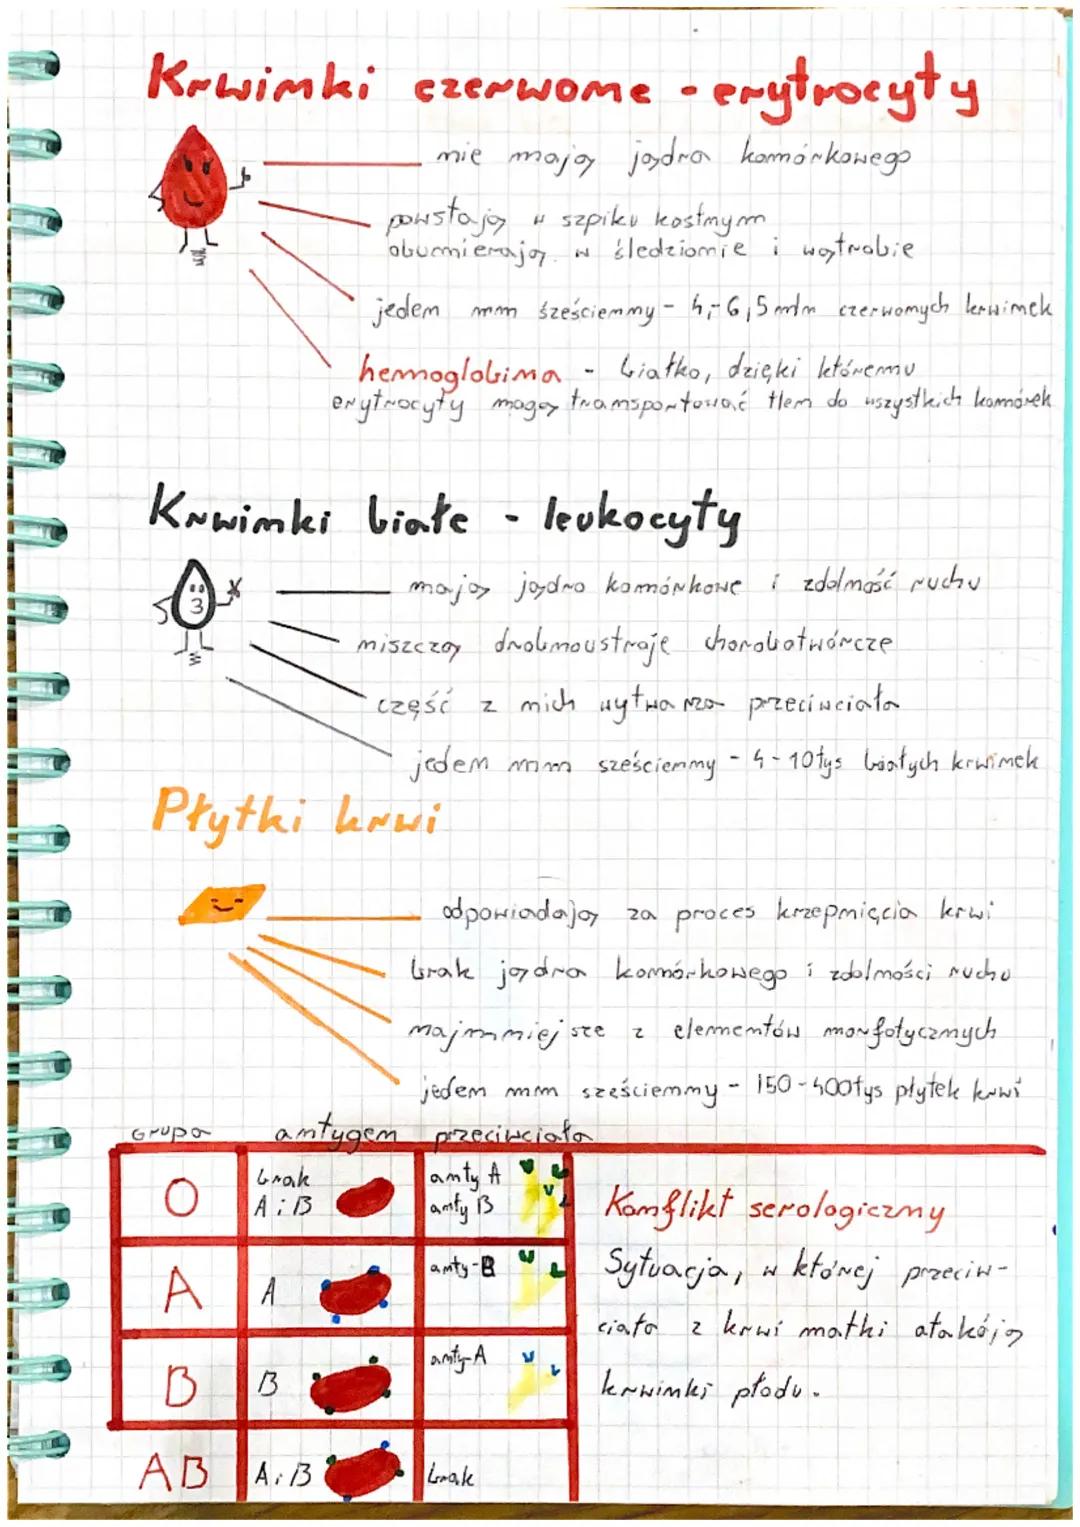 Krwinki czerwone - erytrocyty
nie mają jądra komórkowego
powstają w szpiku kostnym
obumierają w śledzionie i wątrobie
jeden mm sześcienny - 4,-6,5 mln czerwonych krwinek
hemoglobina - białko, dzięki któremu
erytrocyty mogą transportować tlen do wszystkich komórek
Krwinki białe - leukocyty
mają jądro komórkowe i zdolność ruchu
niszczą drobnoustroje chorobotwórcze
część z nich wytwarza przeciwciała
jeden mm sześcienny - 4-10tys białych krwinek
Płytki krwi
odpowiadają za proces krzepnięcia krwi
brak jądra komórkowego i zdolności ruchu
najmniejsze z elementów morfotycznych
jeden mm sześcienny - 150-400tys płytek krwi
Grupa antygen przeciwciała
O brak A i B anty A anty B
A A anty-B
B B anty-A
AB A i B brak
Konflikt serologiczny
Sytuacja, w której przeciw-
ciała z krwi matki atakują
krwinki płodu.